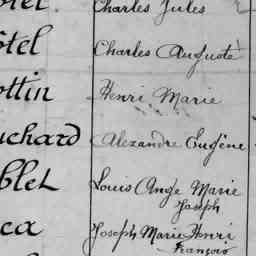 Charles Jules
ôtel Charles Auguste
ottin Henri Marie
uchard Alexandre Eugène
blet Louis Ange Marie
Joseph
ca Joseph Marie Henri
François